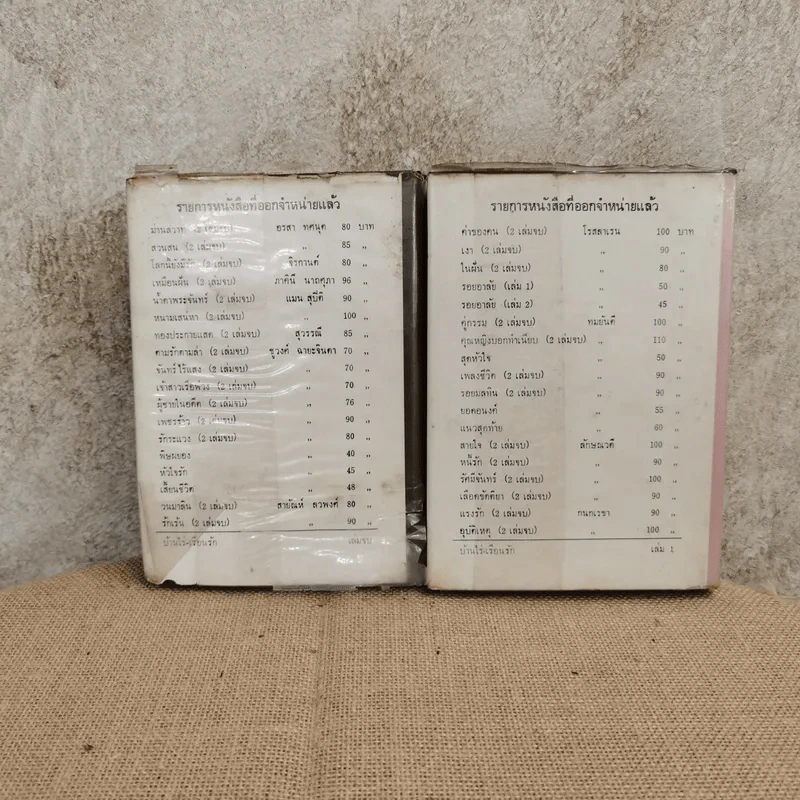 รายการหนังสือที่ออกจำหน่ายแล้ว
ม่านสวาท (2 เล่มจบ) อรสา ทศนุต 80 บาท
สวนสน (2 เล่มจบ) ,, 85 ,,
โลกนี้ยังมีรัก (2 เล่มจบ) จิรกานต์ 80 ,,
เหมือนฝัน (2 เล่มจบ) ภาคินี นาถศุภา 96 ,,
น้ำตาพระจันทร์ (2 เล่มจบ) แมน สุปิติ 90 ,,
หนามเสน่หา (2 เล่มจบ) ,, 100 ,,
ทองประกายแสด (2 เล่มจบ) สุวรรณี 85 ,,
ตามรักตามล่า (2 เล่มจบ) ชูวงศ์ ฉายะจินดา 70 ,,
จันทร์ไร้แสง (2 เล่มจบ) ,, 70 ,,
เจ้าสาวเรือพ่วง (2 เล่มจบ) ,, 70 ,,
ผู้ชายในอดีต (2 เล่มจบ) ,, 76 ,,
เพชรร้าว (2 เล่มจบ) ,, 90 ,,
รักระแวง (2 เล่มจบ) ,, 80 ,,
พิษผยอง ,, 40 ,,
หัวใจรัก ,, 45 ,,
เสี้ยนชีวิต ,, 48 ,,
วนมาลิน (2 เล่มจบ) สายัณห์ ลวพงศ์ 80 ,,
รักเร้น (2 เล่มจบ) ,, 90 ,,
บ้านไร่-เรียนรัก เล่มจบ
รายการหนังสือที่ออกจำหน่ายแล้ว
ค่าของคน (2 เล่มจบ) โรสลาเรน 100 บาท
เงา (2 เล่มจบ) ,, 90 ,,
ในฝัน (2 เล่มจบ) ,, 80 ,,
รอยอาลัย (เล่ม 1) ,, 50 ,,
รอยอาลัย (เล่ม 2) ,, 45 ,,
คู่กรรม (2 เล่มจบ) ทมยันตี 100 ,,
คุณหญิงนอกทำเนียบ (2 เล่มจบ) ,, 110 ,,
สุดหัวใจ ,, 50 ,,
เพลงชีวิต (2 เล่มจบ) ,, 90 ,,
รอยมลทิน (2 เล่มจบ) ,, 90 ,,
ยอดอนงค์ ,, 55 ,,
แนวสุดท้าย ,, 60 ,,
สายใจ (2 เล่มจบ) ลักษณวดี 100 ,,
หนี้รัก (2 เล่มจบ) ,, 90 ,,
รัศมีจันทร์ (2 เล่มจบ) ,, 100 ,,
เลือดขัตติยา (2 เล่มจบ) ,, 90 ,,
แรงรัก (2 เล่มจบ) กนกเรขา 90 ,,
อุบัติเหตุ (2 เล่มจบ) ,, 100 ,,
บ้านไร่-เรียนรัก เล่ม 1